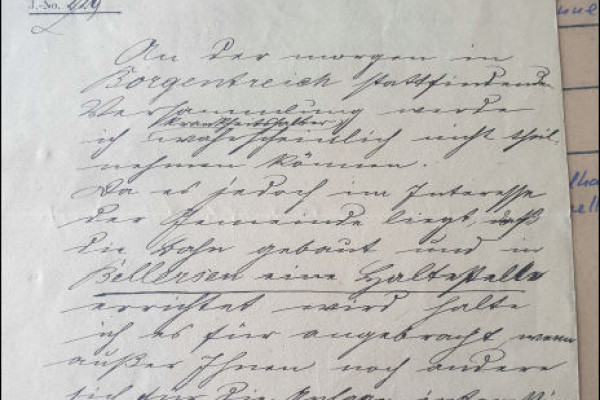 J.-No. 229
An der morgen in
Borgentreich stattfindenden
Versammlung werde
ich krankheitshalber wahrscheinlich nicht theil-
nehmen können.
Da es jedoch im Interesse
der Gemeinde liegt, daß
die Bahn gebaut und in
Bellersen eine Haltestelle
errichtet wird halte
ich es für angebracht, wenn
außer Ihnen noch andere
sich für die Anlage